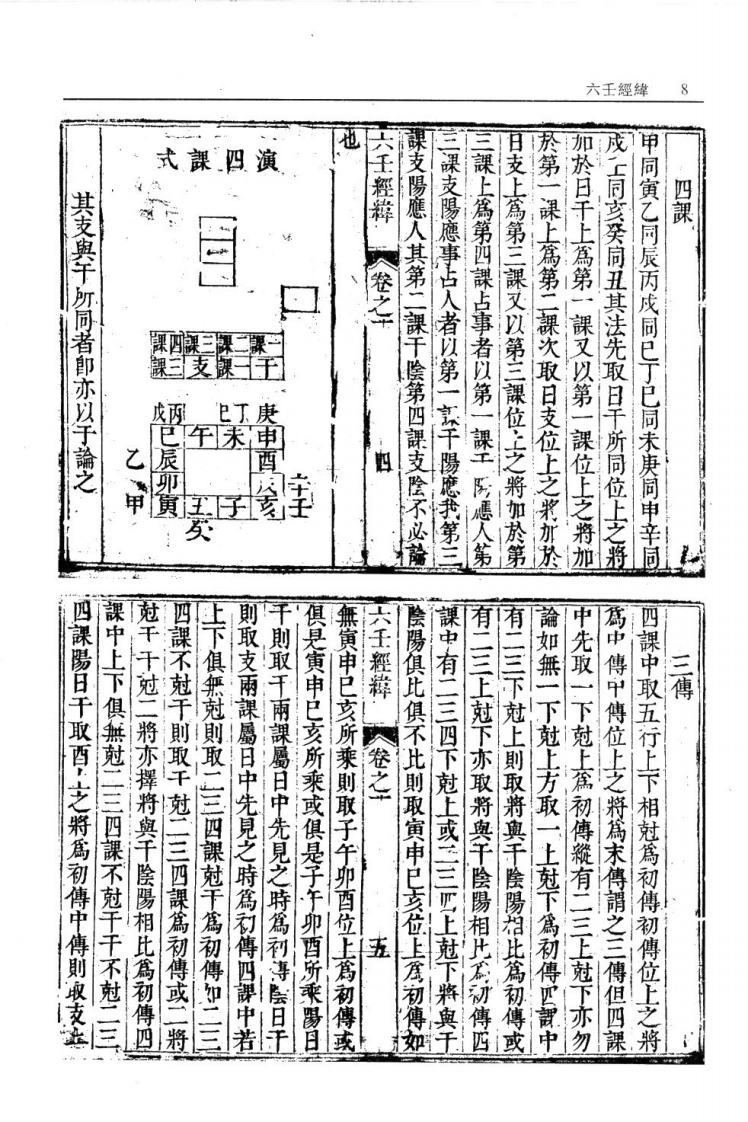 六壬經緯 8
四課
甲同寅乙同辰丙戊同巳丁巳同未庚同申辛同
戌壬同亥癸同丑其法先取日干所同位上之將
加於日干上爲第一課又以第一課位上之將加
於第一課上爲第二課次取日支位上之將加於
日支上爲第三課又以第三課位上之將加於第
三課上爲第四課占事者以第一課干陽應人第
三課支陽應事占人者以第一課干陽應我第三
課支陽應人其第二課干陰第四課支陰不必論
也
六壬經緯
卷之一
四
演四課式
一課 二課 三課 四課
干 一課 支 三課
庚 丁巳 丙戊
申 未 午 巳
酉 辰
戌 卯
亥 子 丑 寅
辛壬
癸
乙甲
其支與干所同者卽亦以于論之
三傳
四課中取五行上下相尅爲初傳初傳位上之將
爲中傳中傳位上之將爲末傳謂之三傳但四課
中先取一下尅上爲初傳縱有二三上尅下亦勿
論如無一下尅上方取一上尅下爲初傳四課中
有二三下尅上則取將與干陰陽相比爲初傳或
有二三上尅下亦取將與干陰陽相比爲初傳四
課中有二三四下尅上或二三四上尅下將與干
陰陽俱比俱不比則取寅申巳亥位上爲初傳如
六壬經緯
卷之一
五
無寅申巳亥所乘則取子午卯酉位上爲初傳或
俱是寅申巳亥所乘或俱是子午卯酉所乘陽日
干則取干兩課屬日中先見之時爲初傳陰日干
則取支兩課屬日中先見之時爲初傳四課中若
上下俱無尅則取二三四課尅干爲初傳如二三
四課不尅干則取干尅二三四課爲初傳或二將
尅干干尅二將亦擇將與干陰陽相比爲初傳四
課中上下俱無尅二三四課不尅干干不尅二三
四課陽日干取酉上之將爲初傳中傳則取支上